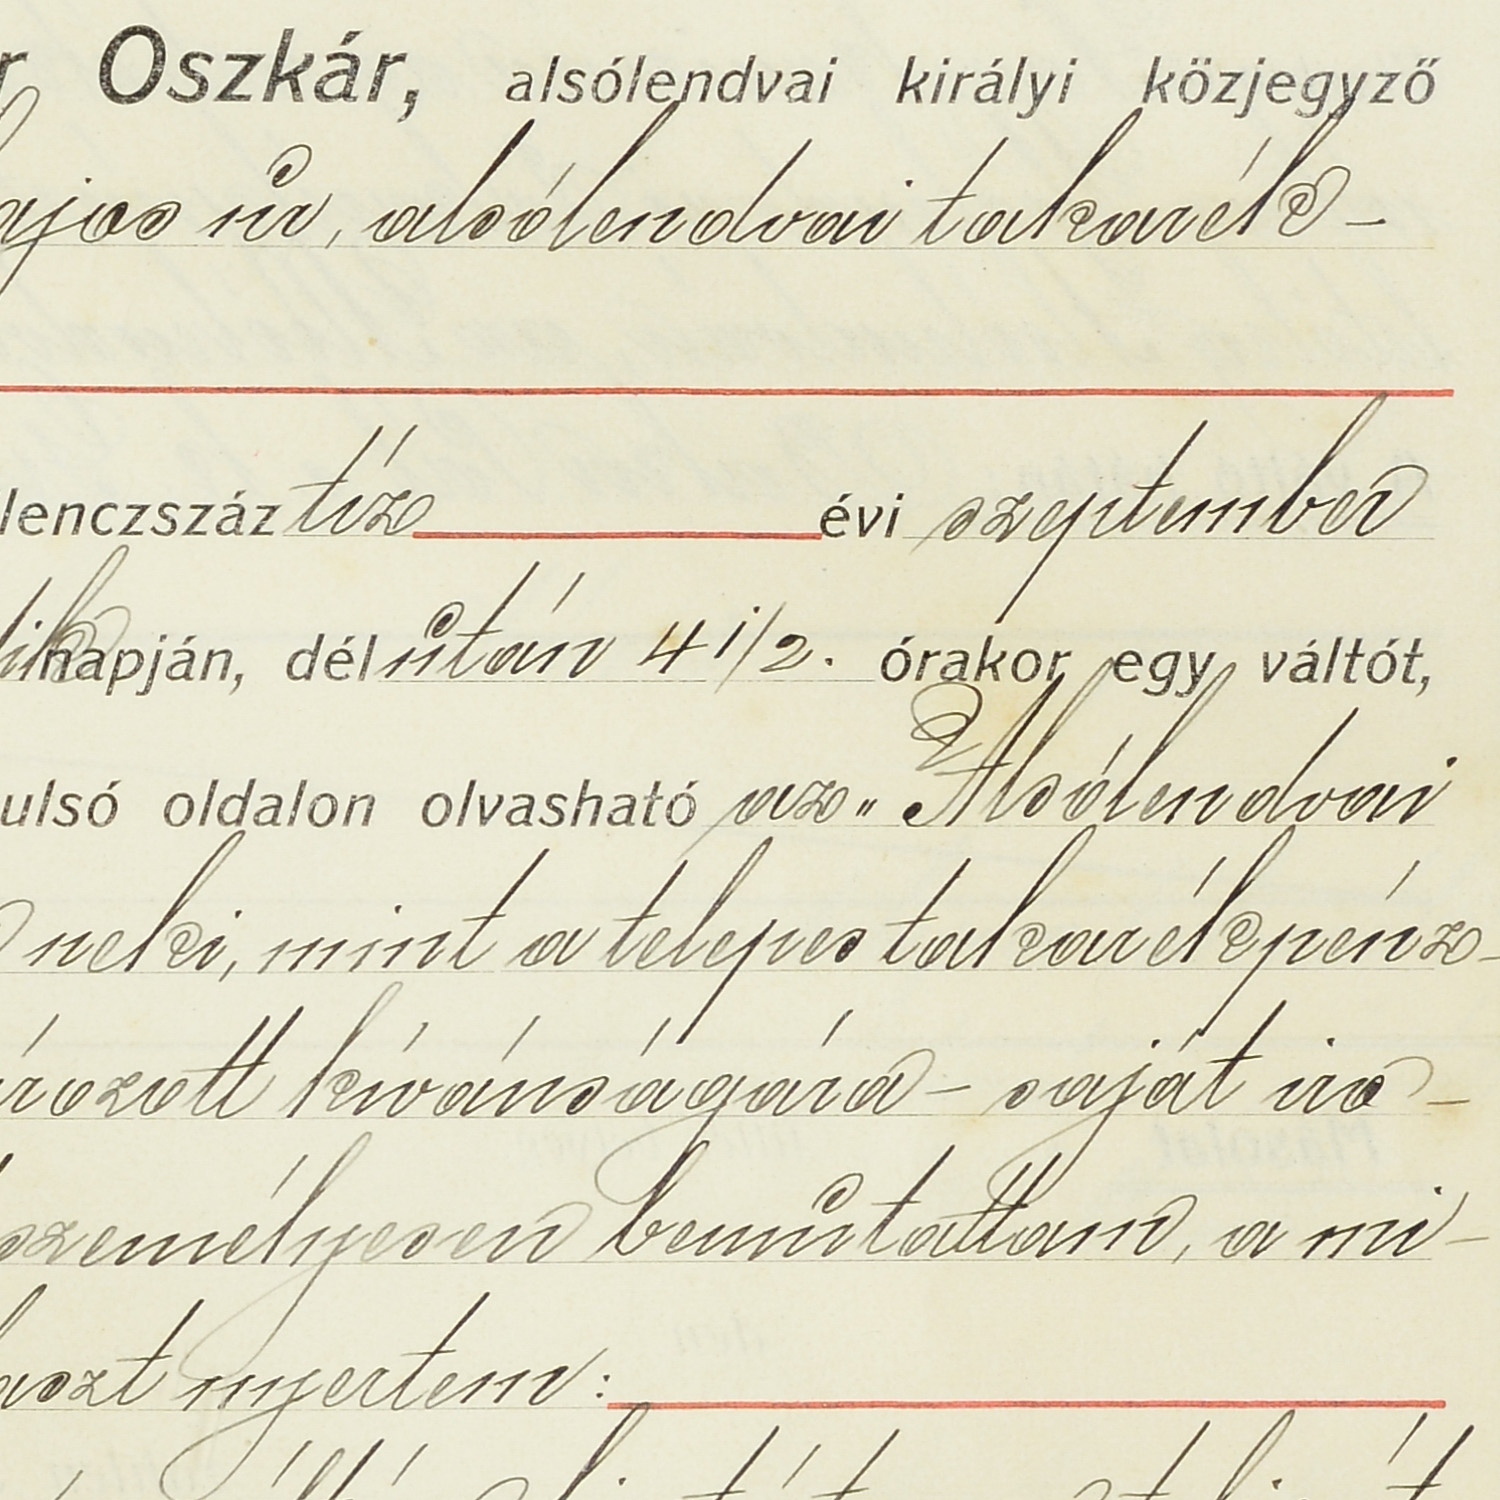 r Oszkár, alsólendvai királyi közjegyző
ajos úr, alsólendvai takarék-
lenczszáz tíz évi szeptember
dik napján, délután 4 1/2. órakor egy váltót,
ulsó oldalon olvasható az „Alsólendvai
neki, mint a telepes takarékpénz-
ározott kívánságára - saját iro-
személyesen bemutattam, a mi-
laszt nyertem: